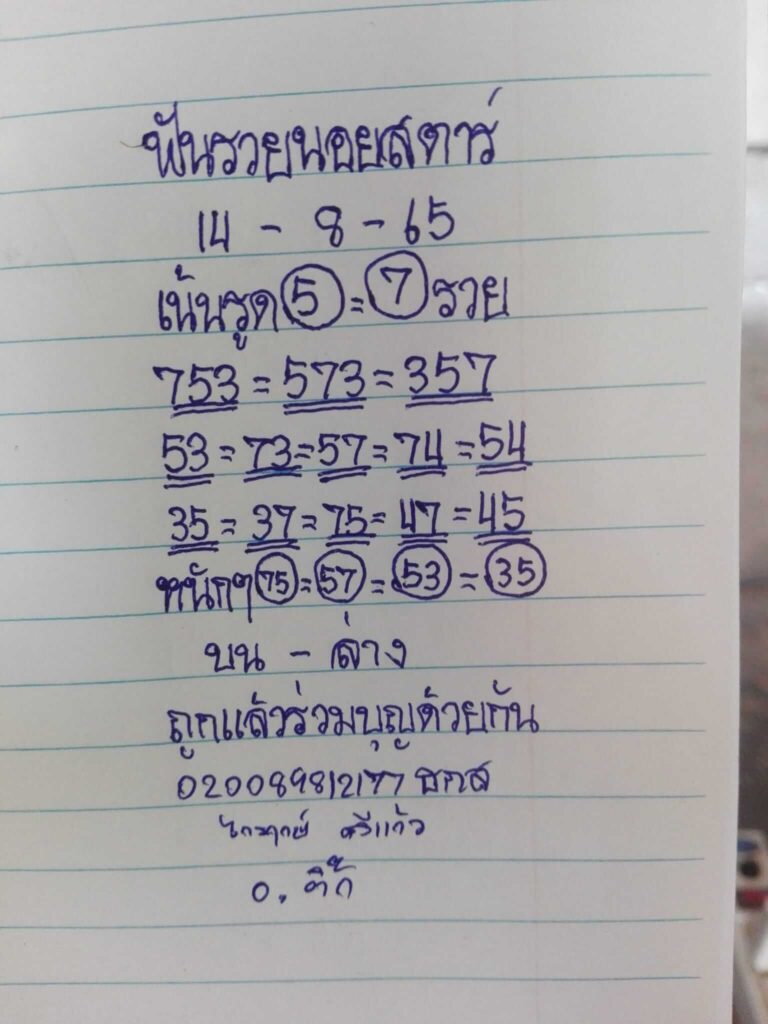 ฟันรวยนอยสตาร์
14 - 8 - 65
เน้นรูด 5 = 7 รวย
753 = 573 = 357
53 = 73 = 57 = 74 = 54
35 = 37 = 75 = 47 = 45
หนักๆ 75 = 57 = 53 = 35
บน - ล่าง
ถูกแล้วร่วมบุญด้วยกัน
020089812177 ธกส
ศรีแก้ว
อ. ติ๊ก